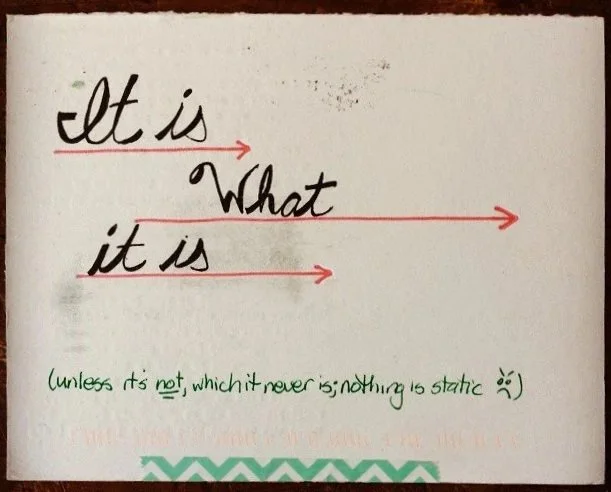 It is
What
it is
(unless it's not, which it never is; nothing is static )